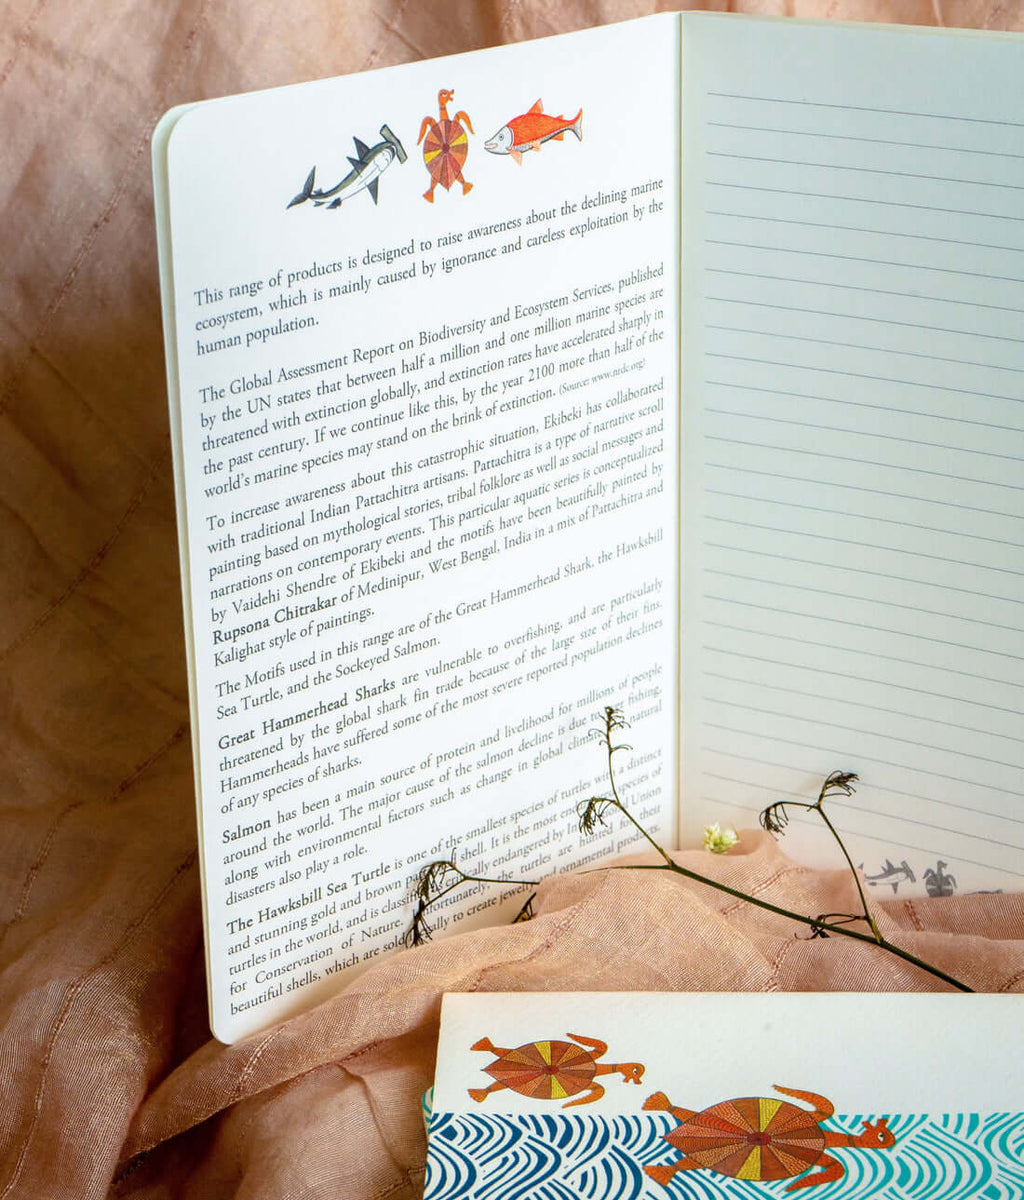 This range of products is designed to raise awareness about the declining marine
ecosystem, which is mainly caused by ignorance and careless exploitation by the
human population.
The Global Assessment Report on Biodiversity and Ecosystem Services, published
by the UN states that between half a million and one million marine species are
threatened with extinction globally, and extinction rates have accelerated sharply in
the past century. If we continue like this, by the year 2100 more than half of the
world's marine species may stand on the brink of extinction. (Source: www.nrdc.org)
To increase awareness about this catastrophic situation, Ekibeki has collaborated
with traditional Indian Pattachitra artisans. Pattachitra is a type of narrative scroll
painting based on mythological stories, tribal folklore as well as social messages and
narrations on contemporary events. This particular aquatic series is conceptualized
by Vaidehi Shendre of Ekibeki and the motifs have been beautifully painted by
Rupsona Chitrakar of Medinipur, West Bengal, India in a mix of Pattachitra and
Kalighat style of paintings.
The Motifs used in this range are of the Great Hammerhead Shark, the Hawksbill
Sea Turtle, and the Sockeyed Salmon.
Great Hammerhead Sharks are vulnerable to overfishing, and are particularly
threatened by the global shark fin trade because of the large size of their fins.
Hammerheads have suffered some of the most severe reported population declines
of any species of sharks.
Salmon has been a main source of protein and livelihood for millions of people
around the world. The major cause of the salmon decline is due to fishing,
along with environmental factors such as change in global natural
disasters also play a role.
The Hawksbill Sea Turtle is one of the smallest species of turtles with a distinct
and stunning gold and brown shell. It is the most species of
turtles in the world, and is endangered by Union
for Conservation of Nature. the turtles are hunted for their
beautiful shells, which are sold to create and ornamental products.